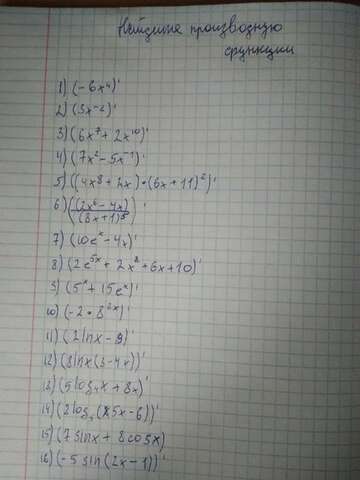 Найдите производную
функции
1) (-6x⁴)'
2) (3x⁻²)'
3) (6x⁷ + 2x¹⁰)'
4) (7x² - 5x⁻¹)'
5) ((4x⁸ + 2x) • (6x + 11)²)'
6) ((2x⁶ - 4x)/(8x + 1)³)'
7) (10eˣ - 4x)'
8) (2e⁵ˣ + 2x⁸ + 6x + 10)'
9) (5ˣ + 15eˣ)'
10) (-2 • 8²ˣ)'
11) (2lnx - 9)'
12) (8lnx(3-4x))'
13) (5log₄x + 8x)'
14) (2log₃(25x - 6))'
15) (7sinx + 8cosx)
16) (-5sin(2x - 1))'